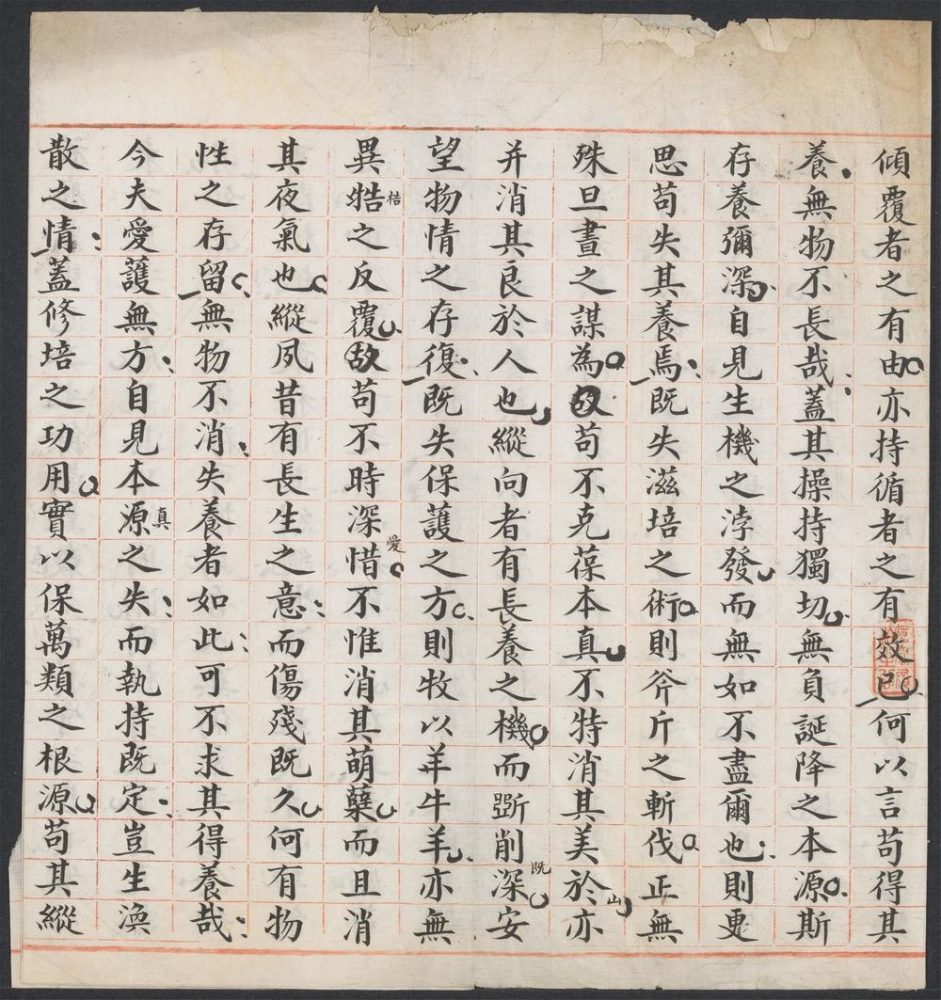 傾覆者之有由亦持循者之有效已何以言苟得其
養無物不長哉蓋其操持獨切無負誕降之本源斯
存養彌深自見生機之浡發而無如不盡爾也則更
思苟失其養焉既失滋培之術則斧斤之斬伐正無
殊旦晝之謀為故苟不克葆本真不特消其美於山亦
并消其良於人也縱向者有長養之機而斲削既深安
望物情之存復既失保護之方則牧以羊牛羊亦無
異牿梏之反覆故苟不時深惜愛不惟消其萌蘖而且消
其夜氣也縱夙昔有長生之意而傷殘既久何有物
性之存留無物不消失養者如此可不求其得養哉
今夫愛護無方自見本源真之失而執持既定豈生渙
散之情蓋修培之功用實以保萬類之根源苟其縱